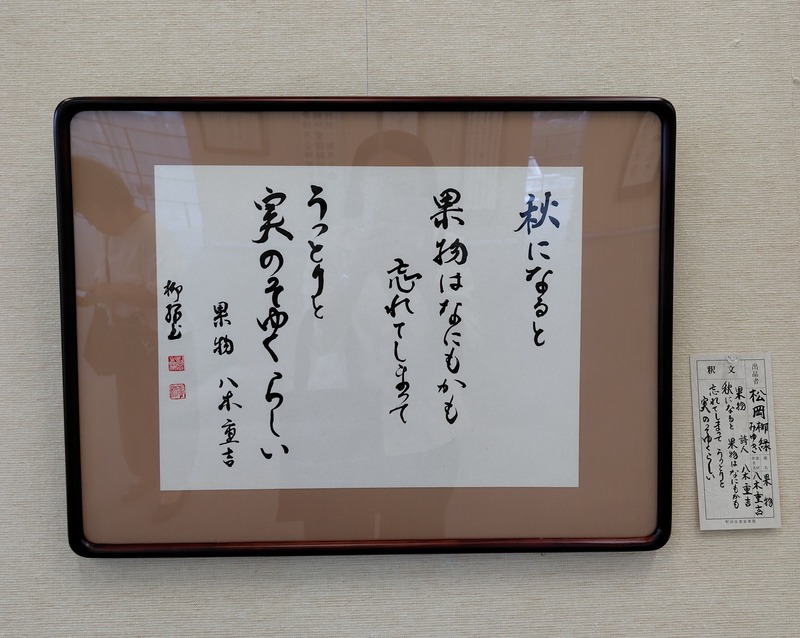 秋になると
果物はなにもかも
忘れてしまって
うっとりと
実のってゆくらしい
果物 八木重吉
柳緑書
出品者
松岡柳緑
みゆき
果物
八木重吉
釈文
果物 詩人 八木重吉
秋になると 果物はなにもかも
忘れてしまって うっとりと
実のってゆくらしい